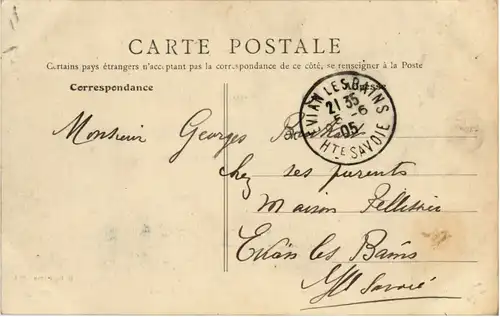 CARTE POSTALE
Certains pays étrangers n'acceptant pas la correspondance de ce côté, se renseigner à la Poste
Correspondance
EVIAN LES BAINS
21 35
5 - 6
05
HTE SAVOIE
Monsieur Georges
chez ses parents
Maison Pellissier
Evian les Bains
Hte Savoie